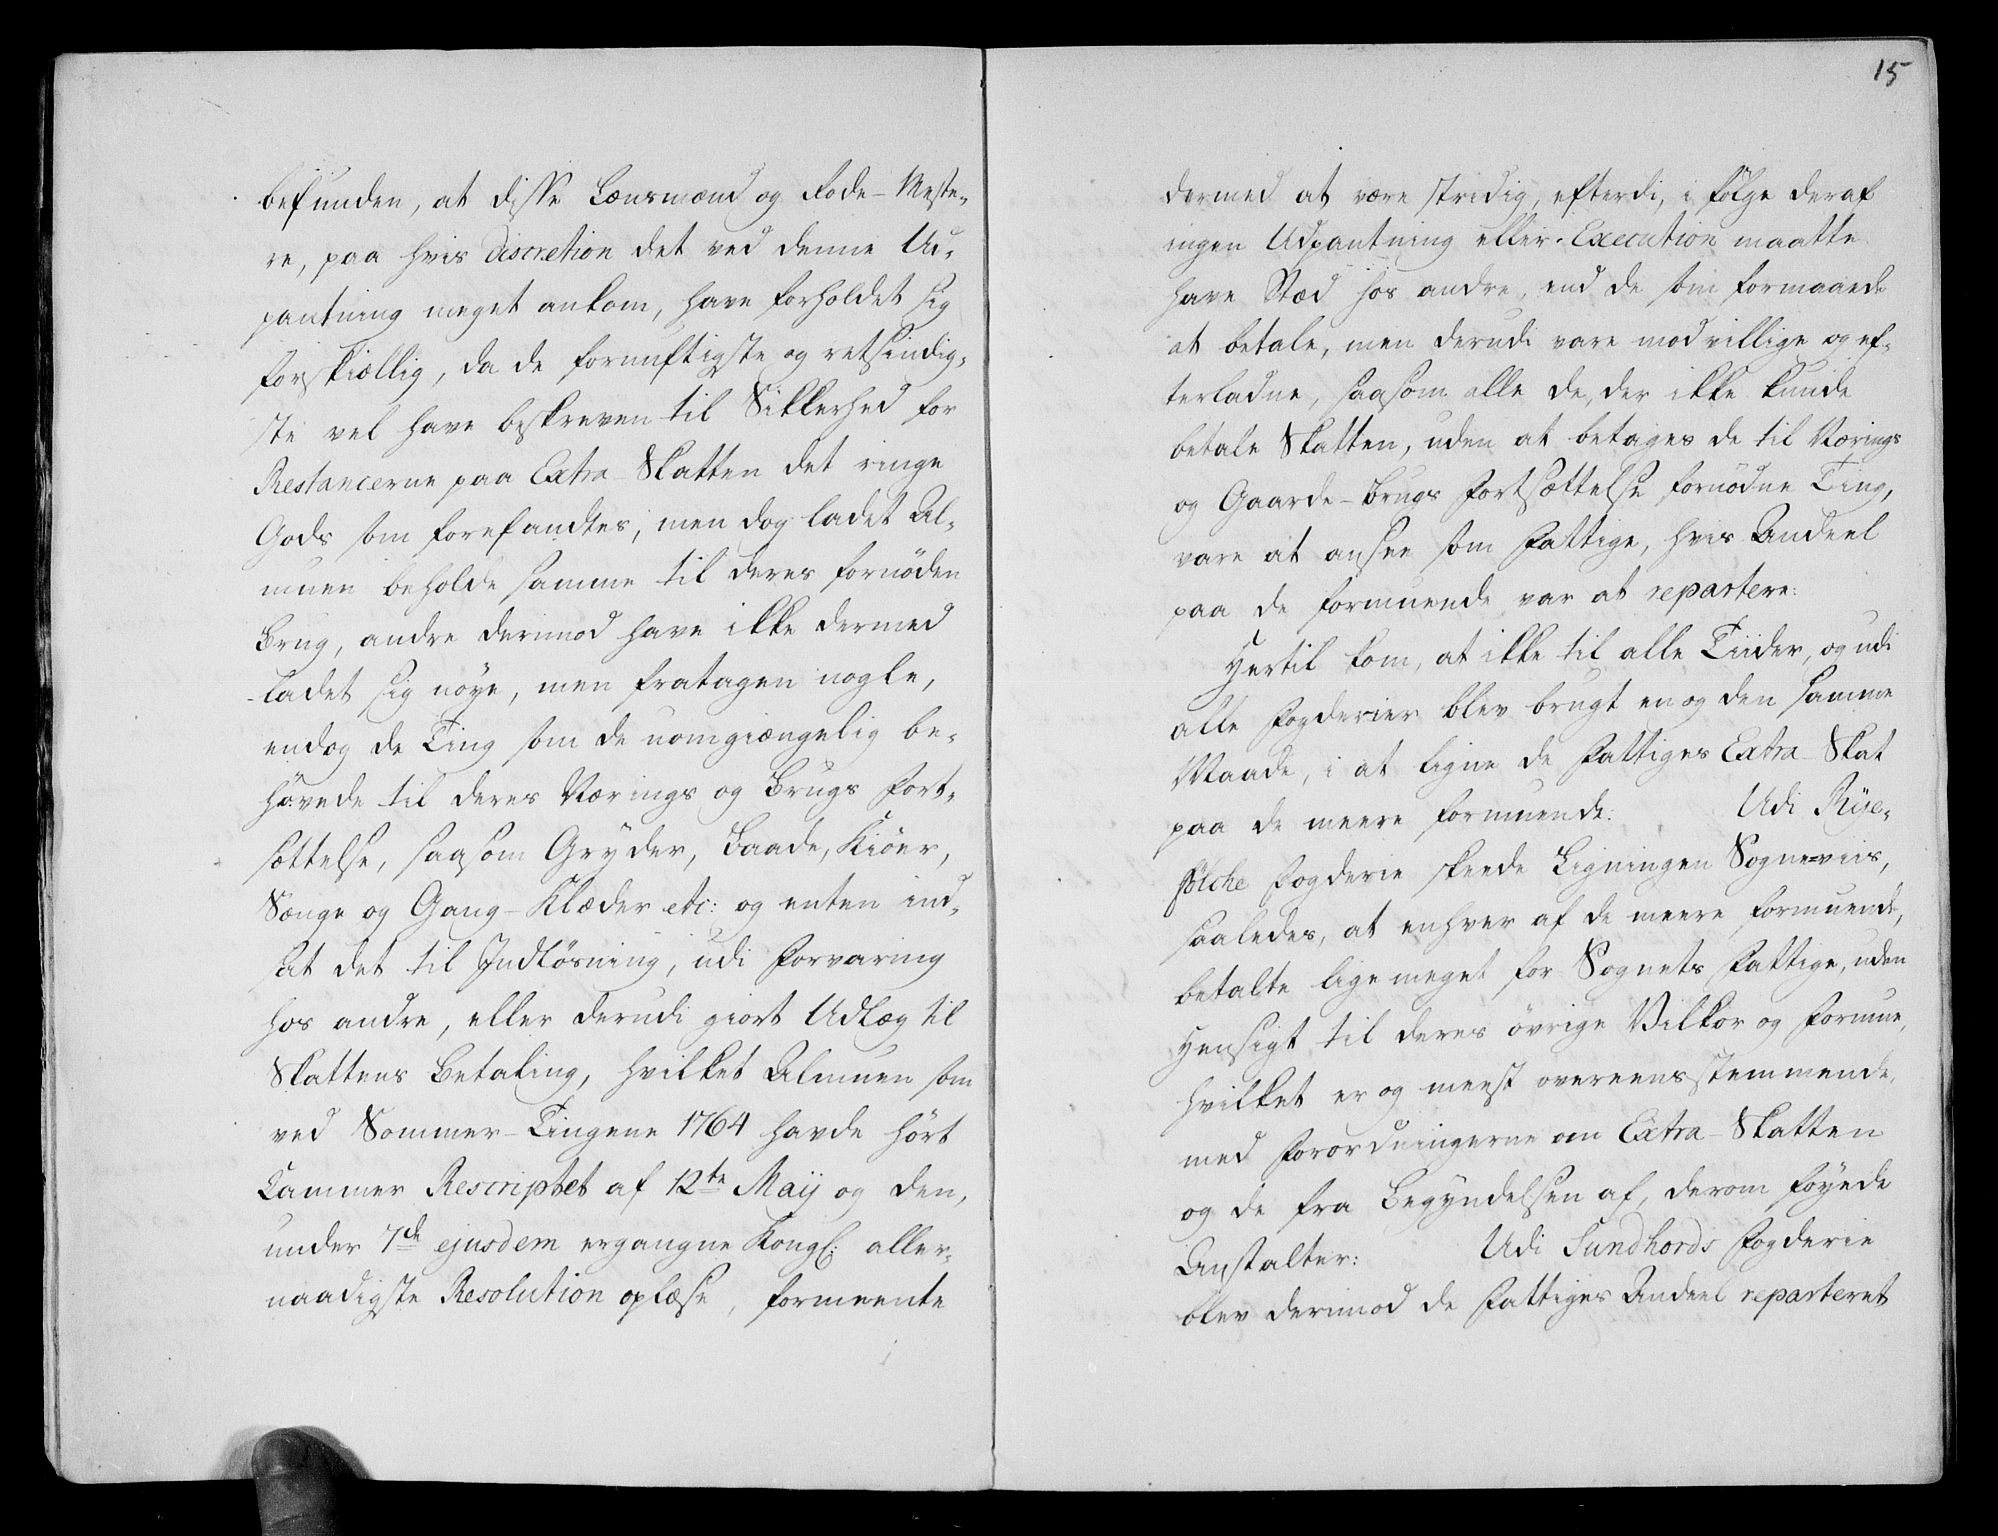 befunden, at disse Lænsmænd og Rode-Meste-
re, paa hvis Discretion det ved denne Ud-
pantning meget ankom, have forholdet sig
forskiællig, da de fornuftigste og retsindig-
ste vel have beskreven til Sikkerhed for
Restancerne paa Extra-Skatten det ringe
Gods som forefandtes, men dog ladet Al-
muen beholde samme til deres fornöden
Brug, andre derimod have ikke dermed
ladet sig nöye, men fratagen nogle,
endog de Ting som de uomgiængelig be-
hövede til deres Nærings og Brugs Fort-
sættelse, saasom Gryder, Baade, Kiöer,
Senge og Gang-Klæder etc: og enten ind-
sat det til Indlösning, udi Forvaring
hos andre, eller derudi giort Udlæg til
Skattens Betaling, hvilket Almuen som
ved Sommer-Tingene 1764 havde hört
Cammer Rescriptet af 12te Maij og den,
under 7de ejusdem ergangne Kongl: aller-
naadigste Resolution oplæse, formeente
15
dermed at være stridig, efterdi, i fölge deraf
ingen Udpantning eller Execution maatte
have Stæd hos andre, end de som formaaede
at betale, men derudi vare modvillige og ef-
terladne, saasom alle de, der ikke kunde
betale Skatten, uden at betages de til Nærings
og Gaarde-Brugs Fortsættelse fornödne Ting,
vare at ansee som Fattige, hvis Andeel
paa de formuende var at repartere:
Hertil kom, at ikke til alle Tiider, og udi
alle Fogderier blev brugt en og den samme
Maade, i at ligne de Fattiges Extra-Skat
paa de meere formuende: Udi Rýe-
fölche Fogderie skeede Ligningen Sogne=viis,
saaledes, at enhver af de meere formuende,
betalte lige meget for Sognets Fattige, uden
Hensigt til deres övrige Vilkor og Formue,
hvilket er og meest overeensstemmende,
med Forordningerne om Extra-Skatten
og de fra Begyndelsen af, derom föyede
Anstalter: Udi Sundhords Fogderie
blev derimod de Fattiges Andeel reparteret